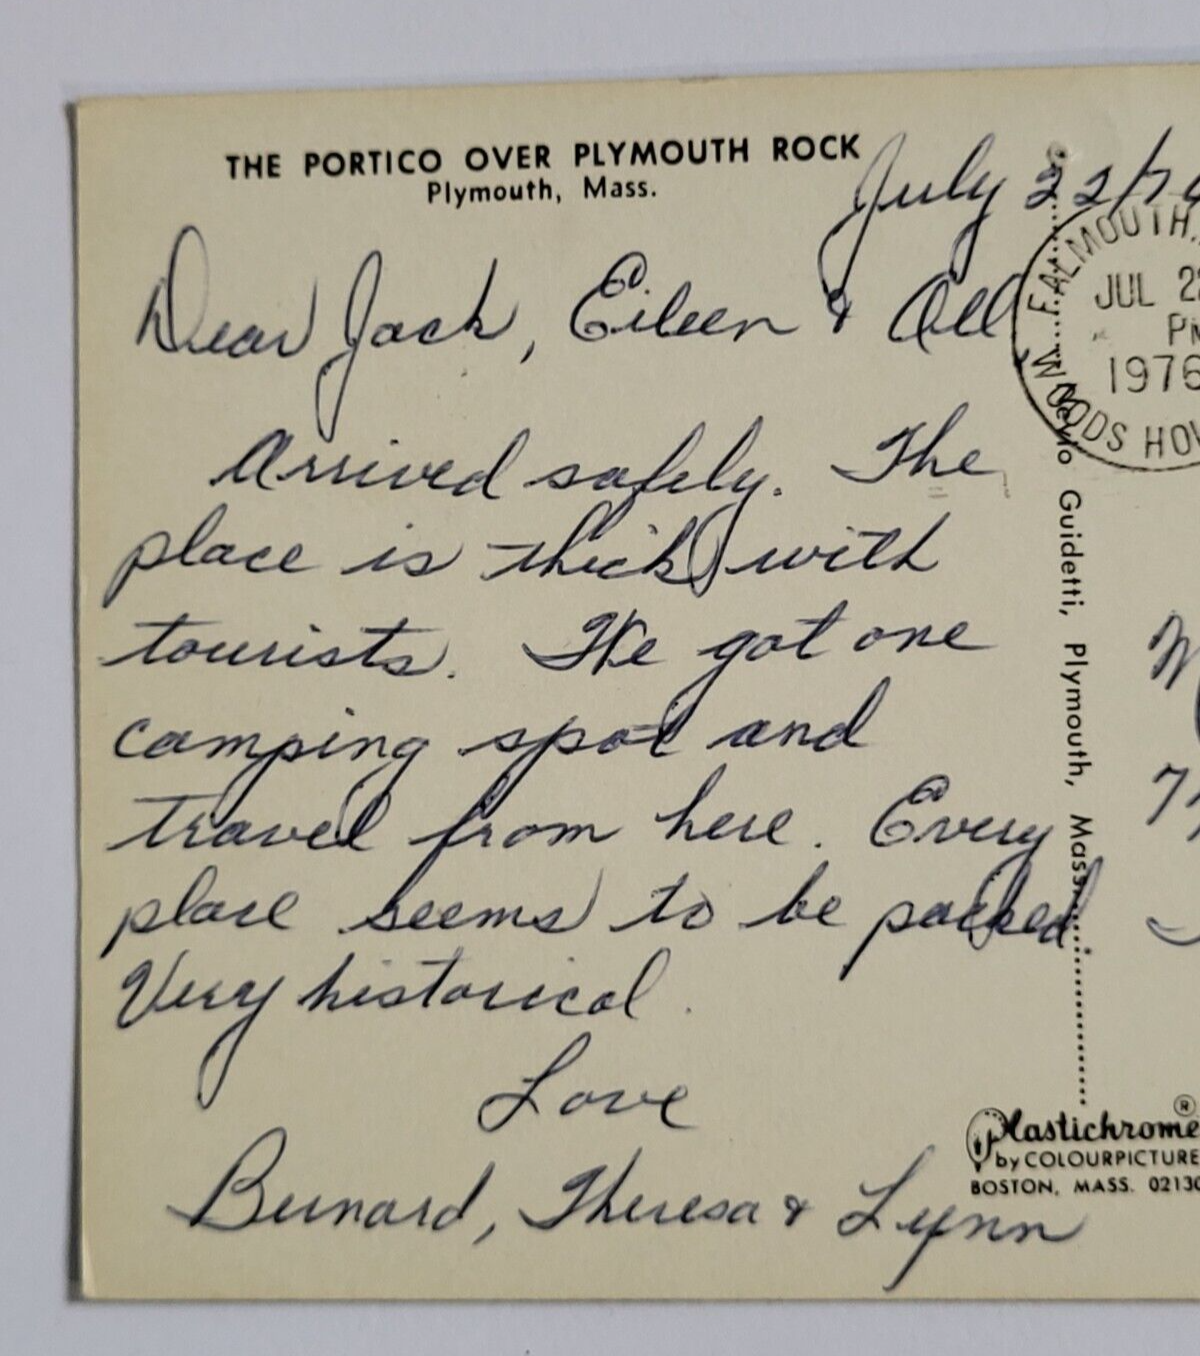 THE PORTICO OVER PLYMOUTH ROCK
Plymouth, Mass.
July 22/76
Dear Jack, Eileen & All
Arrived safely. The
place is thick with
tourists. We got one
camping spot and
travel from here. Every
place seems to be packed
Very historical.
Love
Bernard, Theresa & Lynn
FALMOUTH
JUL 22
PM
1976
WOODS HO
Guidetti, Plymouth, Mass.
Plastichrome®
by COLOURPICTURE
BOSTON, MASS. 02130